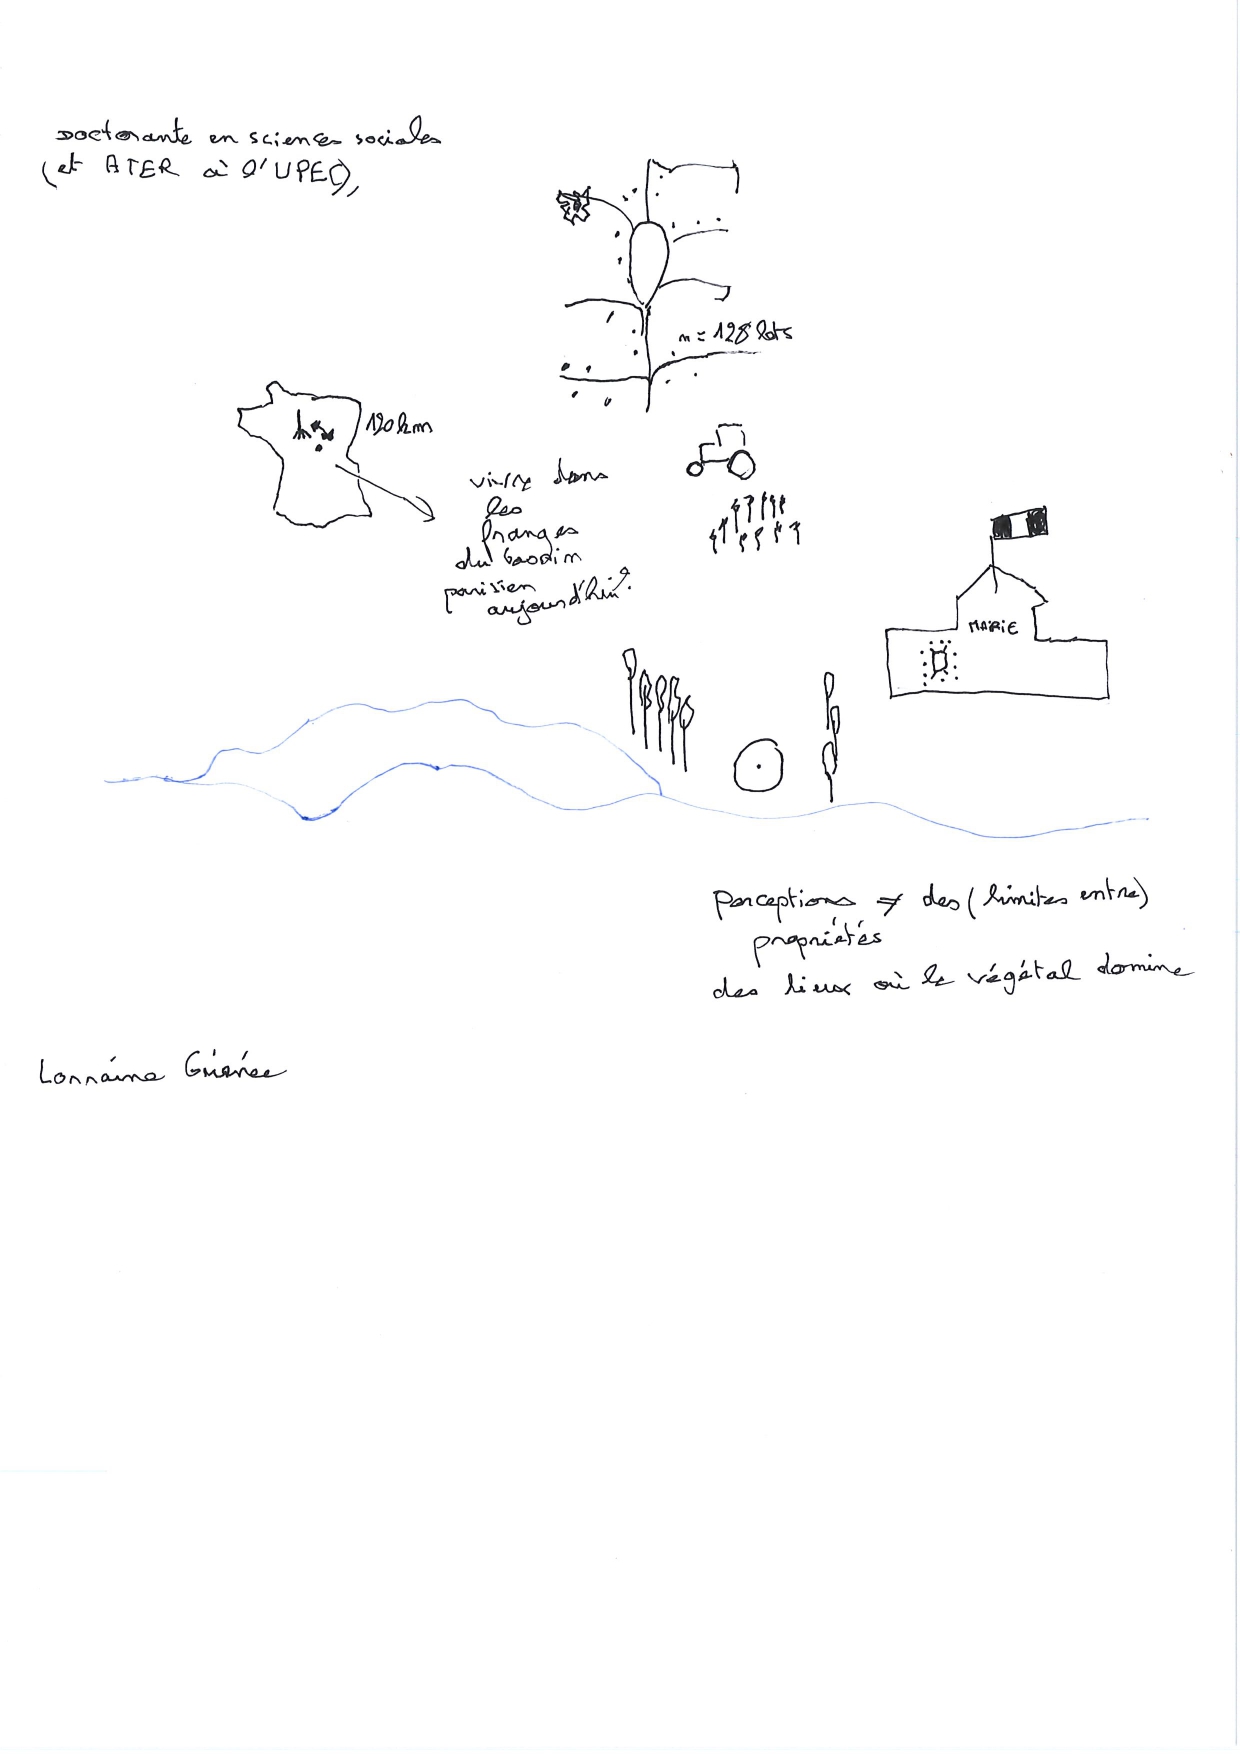 Doctorante en sciences sociales
(et ATER à l'UPEC),
n = 128 lots
120 km
vivre dans
les
franges
du bassin
parisien
aujourd'hui ?
MAIRIE
perceptions ≠ des (limites entre)
propriétés
des lieux où le végétal domine
Lorraine